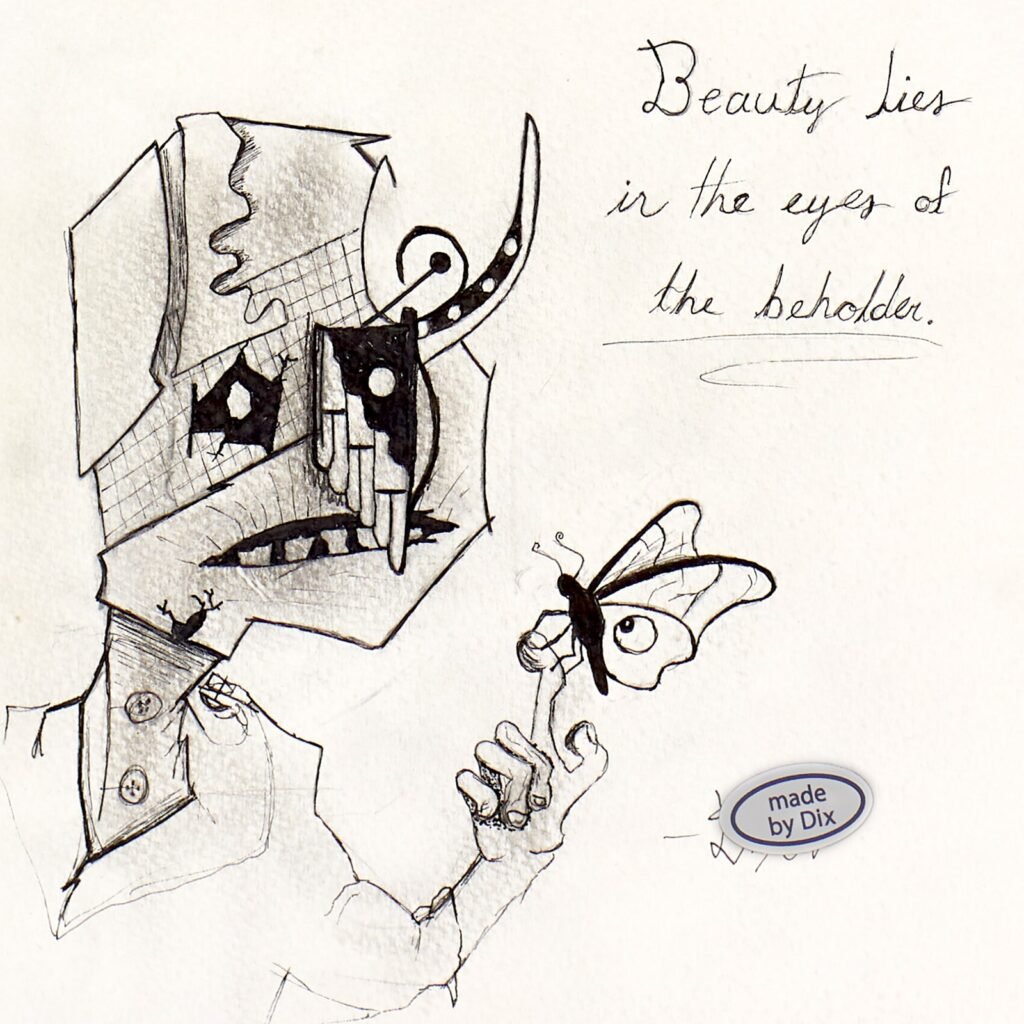 Beauty lies
in the eyes of
the beholder.
made
by Dix